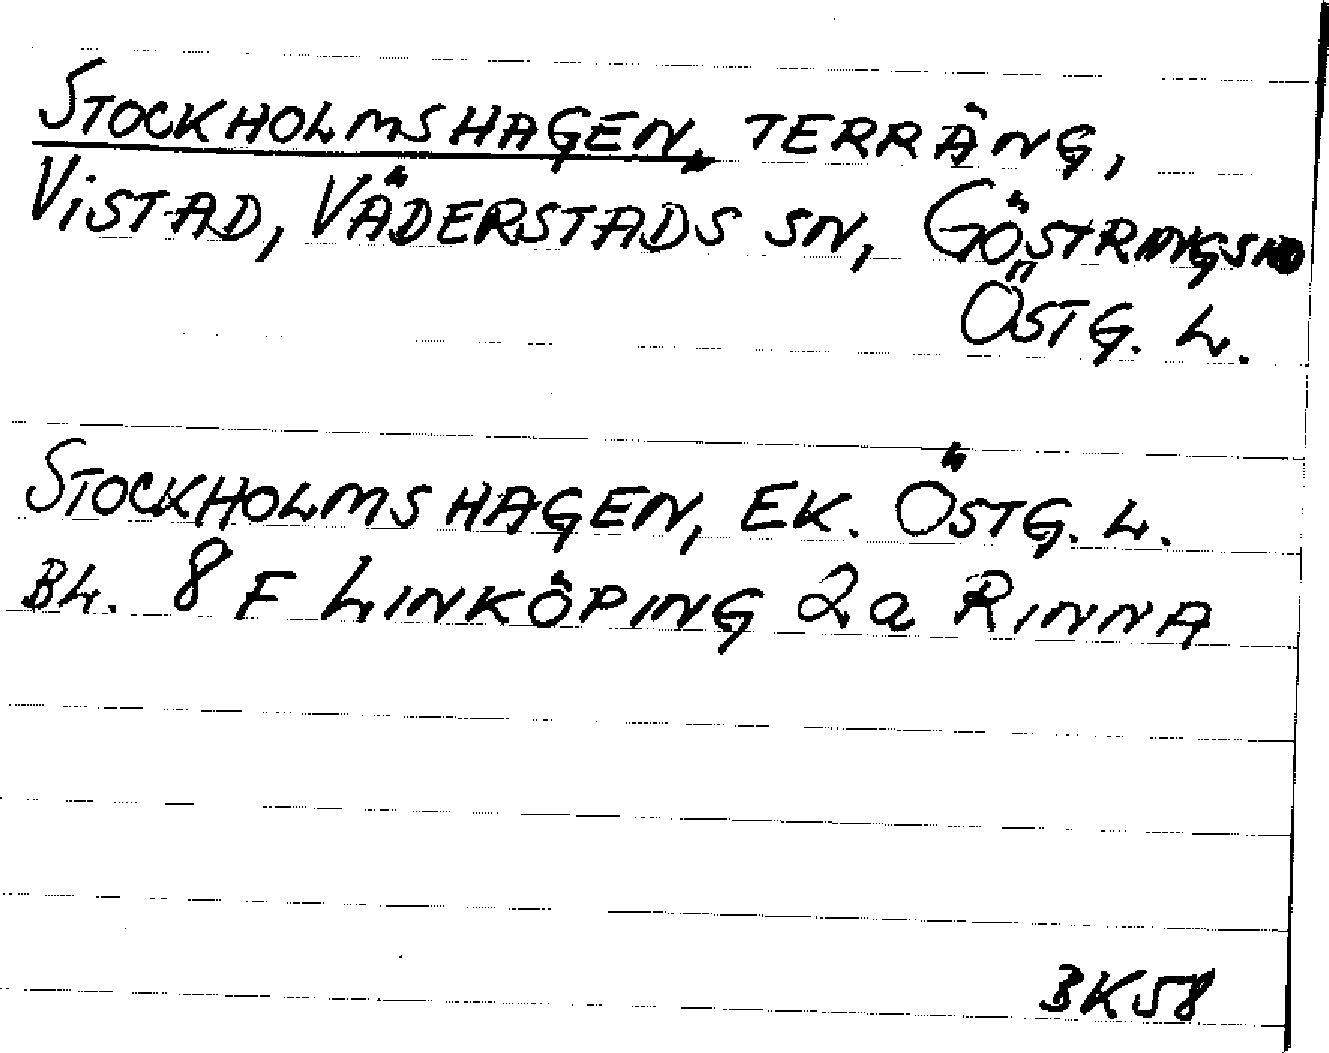 STOCKHOLMSHAGEN, TERRÄNG,
VISTAD, VÄDERSTADS SN, GÖSTRINGS HD
ÖSTG. L.
STOCKHOLMSHAGEN, EK. ÖSTG. L.
BL. 8 F LINKÖPING 2a RINNA
BK58